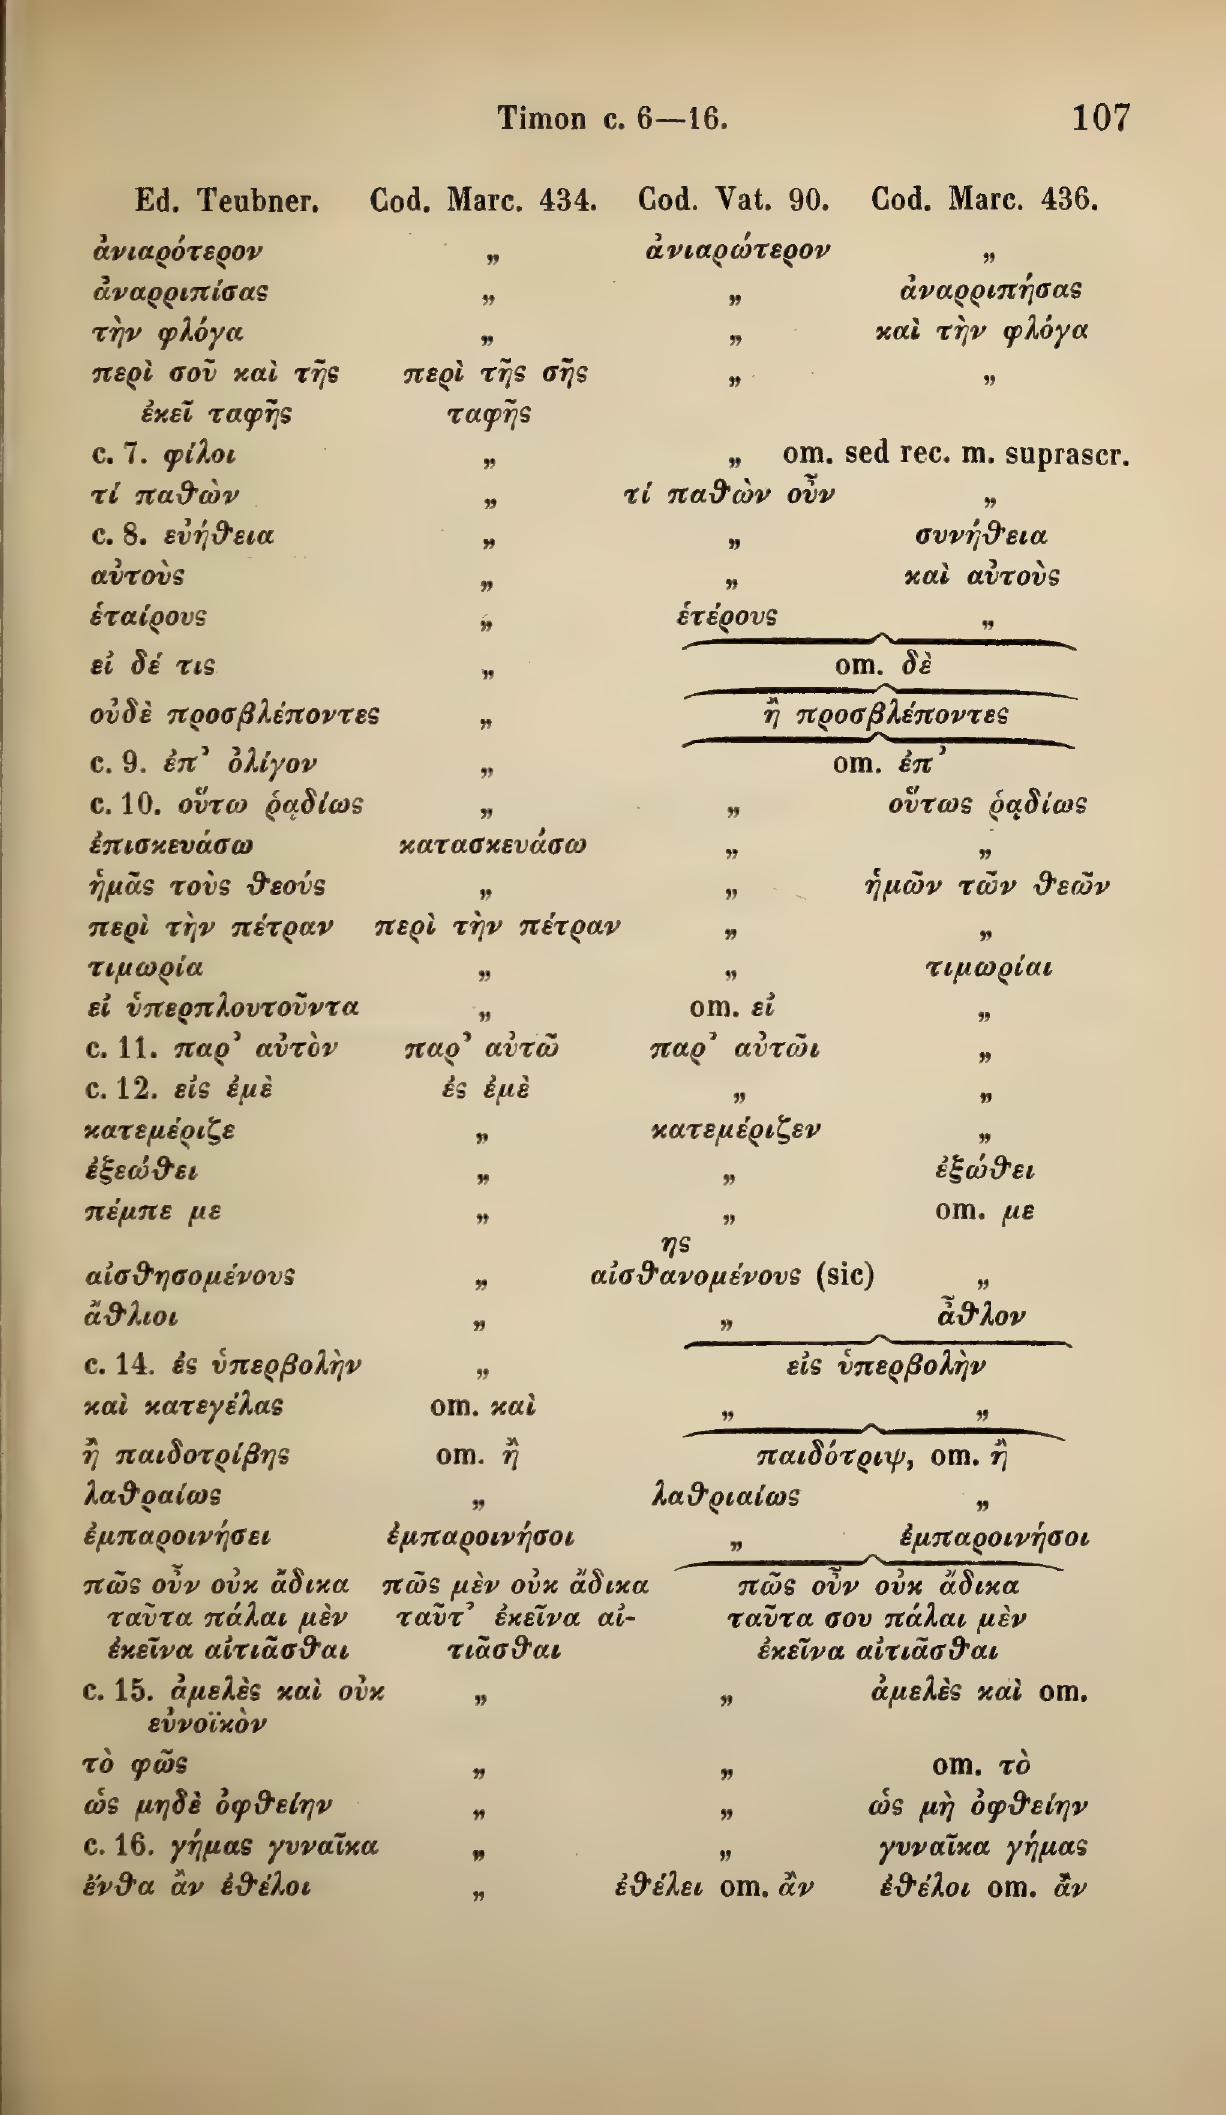 Timon c. 6—16. 107
Ed. Teubner. Cod. Marc. 434. Cod. Vat. 90. Cod. Marc. 436.
ἀνιαρότερον „ ἀνιαρώτερον „
ἀναρριπίσας „ „ ἀναρριπήσας
τὴν φλόγα „ „ καὶ τὴν φλόγα
περὶ σοῦ καὶ τῆς περὶ τῆς σῆς „ „
ἐκεῖ ταφῆς ταφῆς
c. 7. φίλοι „ „ om. sed rec. m. suprascr.
τί παθὼν „ τί παθὼν οὖν „
c. 8. εὐήθεια „ „ συνήθεια
αὐτοὺς „ „ καὶ αὐτοὺς
ἑταίρους „ ἑτέρους „
εἰ δέ τις „ om. δὲ
οὐδὲ προσβλέποντες „ ἢ προσβλέποντες
c. 9. ἐπ’ ὀλίγον „ om. ἐπ’
c. 10. οὕτω ῥᾳδίως „ „ οὕτως ῥᾳδίως
ἐπισκευάσω κατασκευάσω „ „
ἡμᾶς τοὺς θεούς „ „ ἡμῶν τῶν θεῶν
περὶ τὴν πέτραν περὶ τὴν πέτραν „ „
τιμωρία „ „ τιμωρίαι
εἰ ὑπερπλουτοῦντα „ om. εἰ „
c. 11. παρ’ αὐτὸν παρ’ αὐτῶ παρ’ αὐτῶι „
c. 12. εἰς ἐμὲ ἐς ἐμὲ „ „
κατεμέριζε „ κατεμέριζεν „
ἐξεώθει „ „ ἐξώθει
πέμπε με „ „ om. με
ης
αἰσθησομένους „ αἰσθανομένους (sic) „
ἄθλιοι „ „ ἆθλον
c. 14. ἐς ὑπερβολὴν „ εἰς ὑπερβολὴν
καὶ κατεγέλας om. καὶ „ „
ἢ παιδοτρίβης om. ἢ παιδότριψ, om. ἢ
λαθραίως „ λαθριαίως „
ἐμπαροινήσει ἐμπαροινήσοι „ ἐμπαροινήσοι
πῶς οὖν οὐκ ἄδικα πῶς μὲν οὐκ ἄδικα πῶς οὖν οὐκ ἄδικα
ταῦτα πάλαι μὲν ταῦτ’ ἐκεῖνα αἰ- ταῦτα σου πάλαι μὲν
ἐκεῖνα αἰτιᾶσθαι τιᾶσθαι ἐκεῖνα αἰτιᾶσθαι
c. 15. ἀμελὲς καὶ οὐκ „ „ ἀμελὲς καὶ om.
εὐνοϊκὸν
τὸ φῶς „ „ om. τὸ
ὡς μηδὲ ὀφθείην „ „ ὡς μὴ ὀφθείην
c. 16. γήμας γυναῖκα „ „ γυναῖκα γήμας
ἔνθα ἂν ἐθέλοι „ ἐθέλει om. ἂν ἐθέλοι om. ἂν